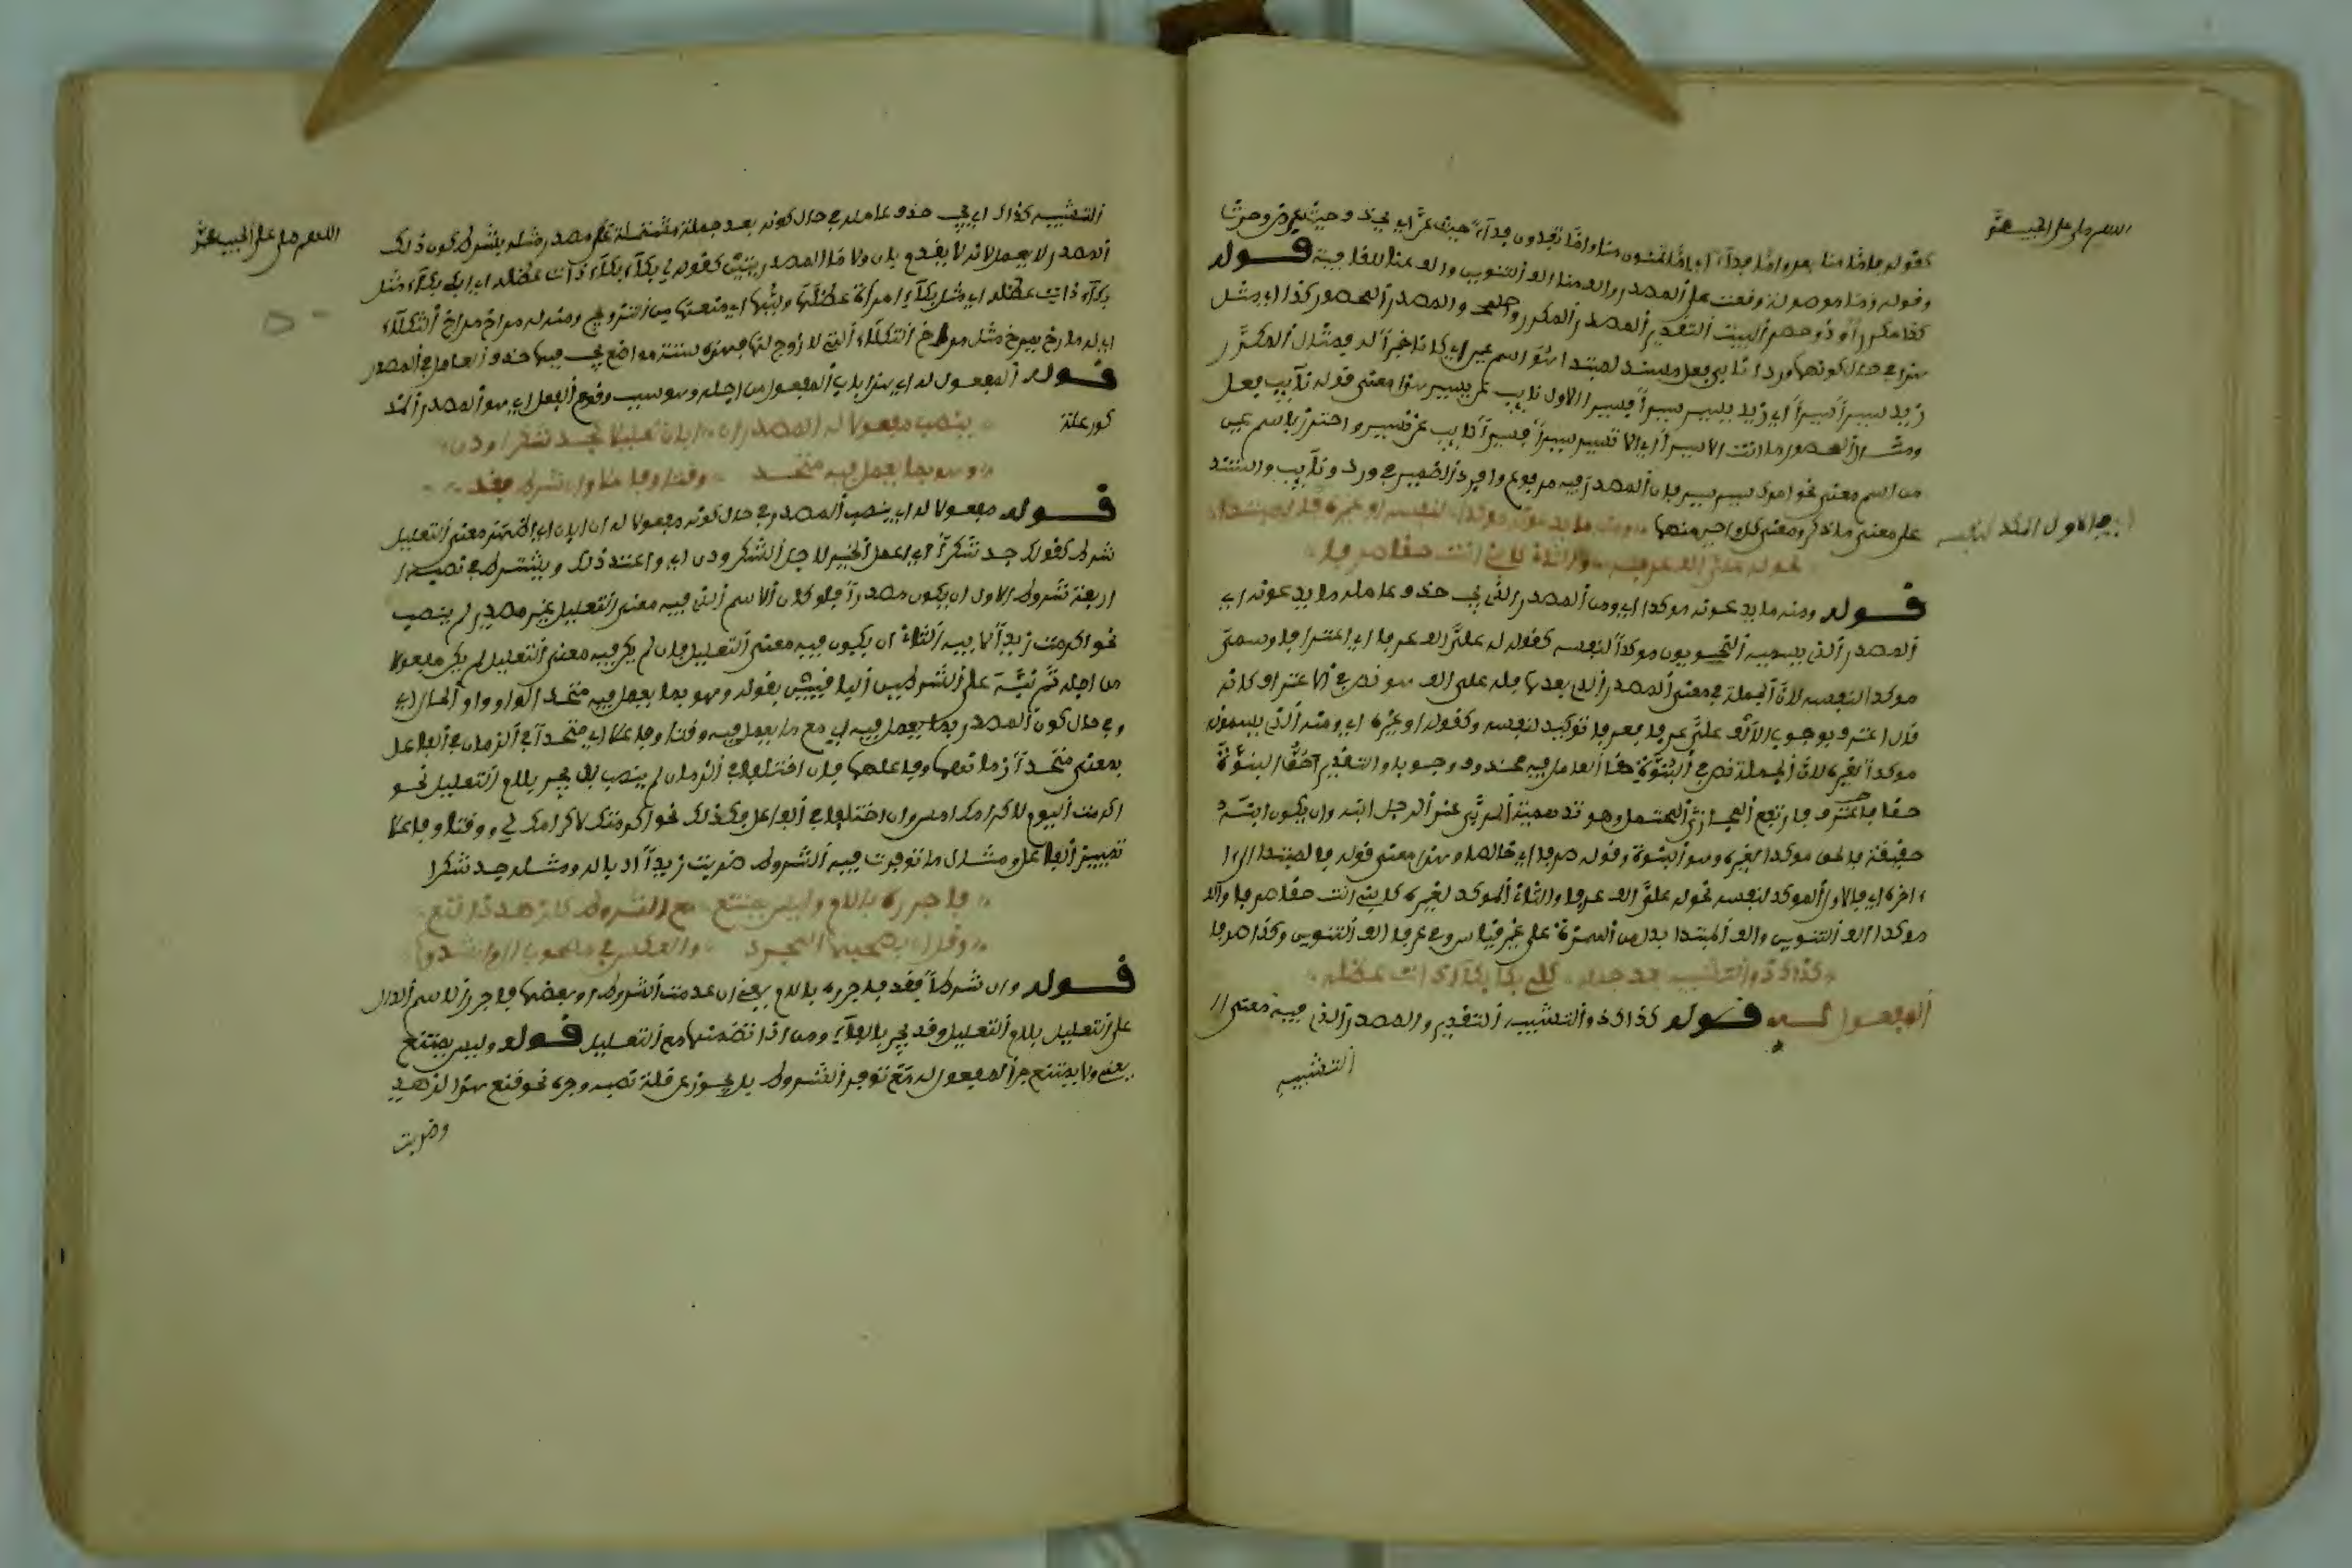 اللهم صل على الحبيب محمد
كقوله فإما منا بعد وإما فداء أي إما تمنون منا وإما تفدون فداء
وقوله وما موصولة وقعت على المصدر والف منا الف التنوين والف عنا للقافية قوله
كذا مكرر أو ذو حصر البيت التقدير المصدر المكرر والمصدر المحصور كذا أي مثل
هذا في حال كونهما وردا نائبي فعل مسند لمبتدا هو اسم عين
زيد سيرا سيرا أي زيد يسير سيرا فسيرا الاول نايب عن يسير هذا معنى قوله نايب فعل
ومثال المحصور ما انت الا سيرا أي الا تسير سيرا فسيرا نايب عن تسير واحترز باسم عين
من اسم معنى نحو امرك سير سير فإن المصدر فيه مرفوع وافرد الضمير في ورد ونايب واستند
على معنى ما ذكر ومعنى كل واحد منهما ومنه ما يدعونه موكدا لنفسه او غيره فالمبتدا
نحو له علي الف عرفا والثان كابني انت حقا صرفا
قوله ومنه ما يدعونه موكدا أي ومن المصدر الذي يجب حذف عامله ما يدعونه أي
المصدر الذي يسميه النحويون موكدا لنفسه كقوله له علي الف عرفا أي اعترافا وسمي
موكدا لنفسه لان الجملة في معنى المصدر الذي بعدها فله علي الف هو نص في الاعتراف كانه
قال اعترف بوجوب الالف علي عرفا فعرفا توكيد لنفسه وكقوله او غيره أي ومنه الذي يسمونه
موكدا لغيره لان الجملة نص في البنوة حقا العامل فيه محذوف وجوبا والتقدير احق البنوة
حقا فارتفع المجاز المحتمل وهو تسمية المربى عند الرجل ابنه وان يكون ابنه
حقيقة فالحق موكدا لغيره وهو البنوة وقوله صرفا أي خالصا وهذا معنى قوله فالمبتدا الى
اخره أي فالاول الموكد لنفسه نحو له علي الف عرفا والثان الموكد لغيره كابني انت حقا صرفا والف
موكدا الف التنوين والف المبتدا بدل من الهمزة على غير قياس وفي عرفا الف التنوين وكذا صرفا
كذاك ذو التشبيه بعد جملة كلي بكا بكاء ذات عضله
المفعول له قوله كذاك ذو التشبيه التقدير والمصدر الذي فيه معنى
التشبيه
اللهم صل على الحبيب محمد
التشبيه كذاك أي يجب حذف عامله في حال كونه بعد جملة مشتملة على مصدر مثله بشرط كون ذلك
المصدر لا يعمل لانه لا يقدر بان ولا ما المصدريتين كقوله لي بكاء بكاء ذات عضله أي ابكي بكاء مثل
بكاء ذات عضله أي مثل بكاء امرأة عضلها وليها أي منعها من التزويج ومنه له صراخ صراخ الثكلاء
أي له صارخ يصرخ مثل صراخ الثكلاء التي لا زوج لها فهذه ستة مواضع يجب فيها حذف العامل في المصدر
قوله المفعول له أي هذا باب المفعول من اجله وهو سبب وقوع الفعل أي هو المصدر المذ
كور علة
ينصب مفعولا له المصدر ان ابان تعليلا كجد شكرا ودن
وهو بما يعمل فيه متحد وقتا وفاعلا وان شرط فقد
قوله مفعولا له أي ينصب المصدر في حال كونه مفعولا له ان ابان أي افهم معنى التعليل
شرط كقولك جد شكرا أي اعمل الخير لاجل الشكر ودن أي واعتد ذلك ويشترط في نصبه
اربعة شروط الاول ان يكون مصدرا فلو كان الاسم الذي فيه معنى التعليل غير مصدر لم ينصب
نحو اكرمت زيدا لابيه الثان ان يكون فيه معنى التعليل فان لم يكن فيه معنى التعليل لم يكن مفعولا
من اجله ثم نبه على الشرطين الباقيين بقوله وهو بما يعمل فيه متحد الواو واو الحال أي
وفي حال كون المصدر بما يعمل فيه أي مع ما يعمل فيه وقتا وفاعلا أي متحدا في الزمان في الفاعل
بمعنى متحدا زمانهما وفاعلهما فان اختلفا في الزمان لم ينصب بل يجر بلام التعليل نحو
اكرمت اليوم لاكرامك امس وان اختلفا في الفاعل فكذلك نحو اكرمتك لاكرامك لي ووقتا وفاعلا
تمييز الفاعل ومثال ما توفرت فيه الشروط ضربت زيدا ادبا له ومثله جد شكرا
فاجرره باللام وليس يمتنع مع الشروط كلزهد ذا قنع
وقل ان يصحبها المجرد والعكس في مصحوب ال وانشدوا
قوله وان شرط فقد فاجرره باللام يعني ان عدمت الشروط او بعضها فاجرر الاسم الدال
على التعليل بلام التعليل وقد يجر بالباء ومن اذا تضمنتها مع التعليل قوله وليس يمتنع
يعني ولا يمتنع جر المفعول له مع توفر الشروط بل يجوز على قلة نصبه وجره نحو قنع هذا لزهد
وضربت